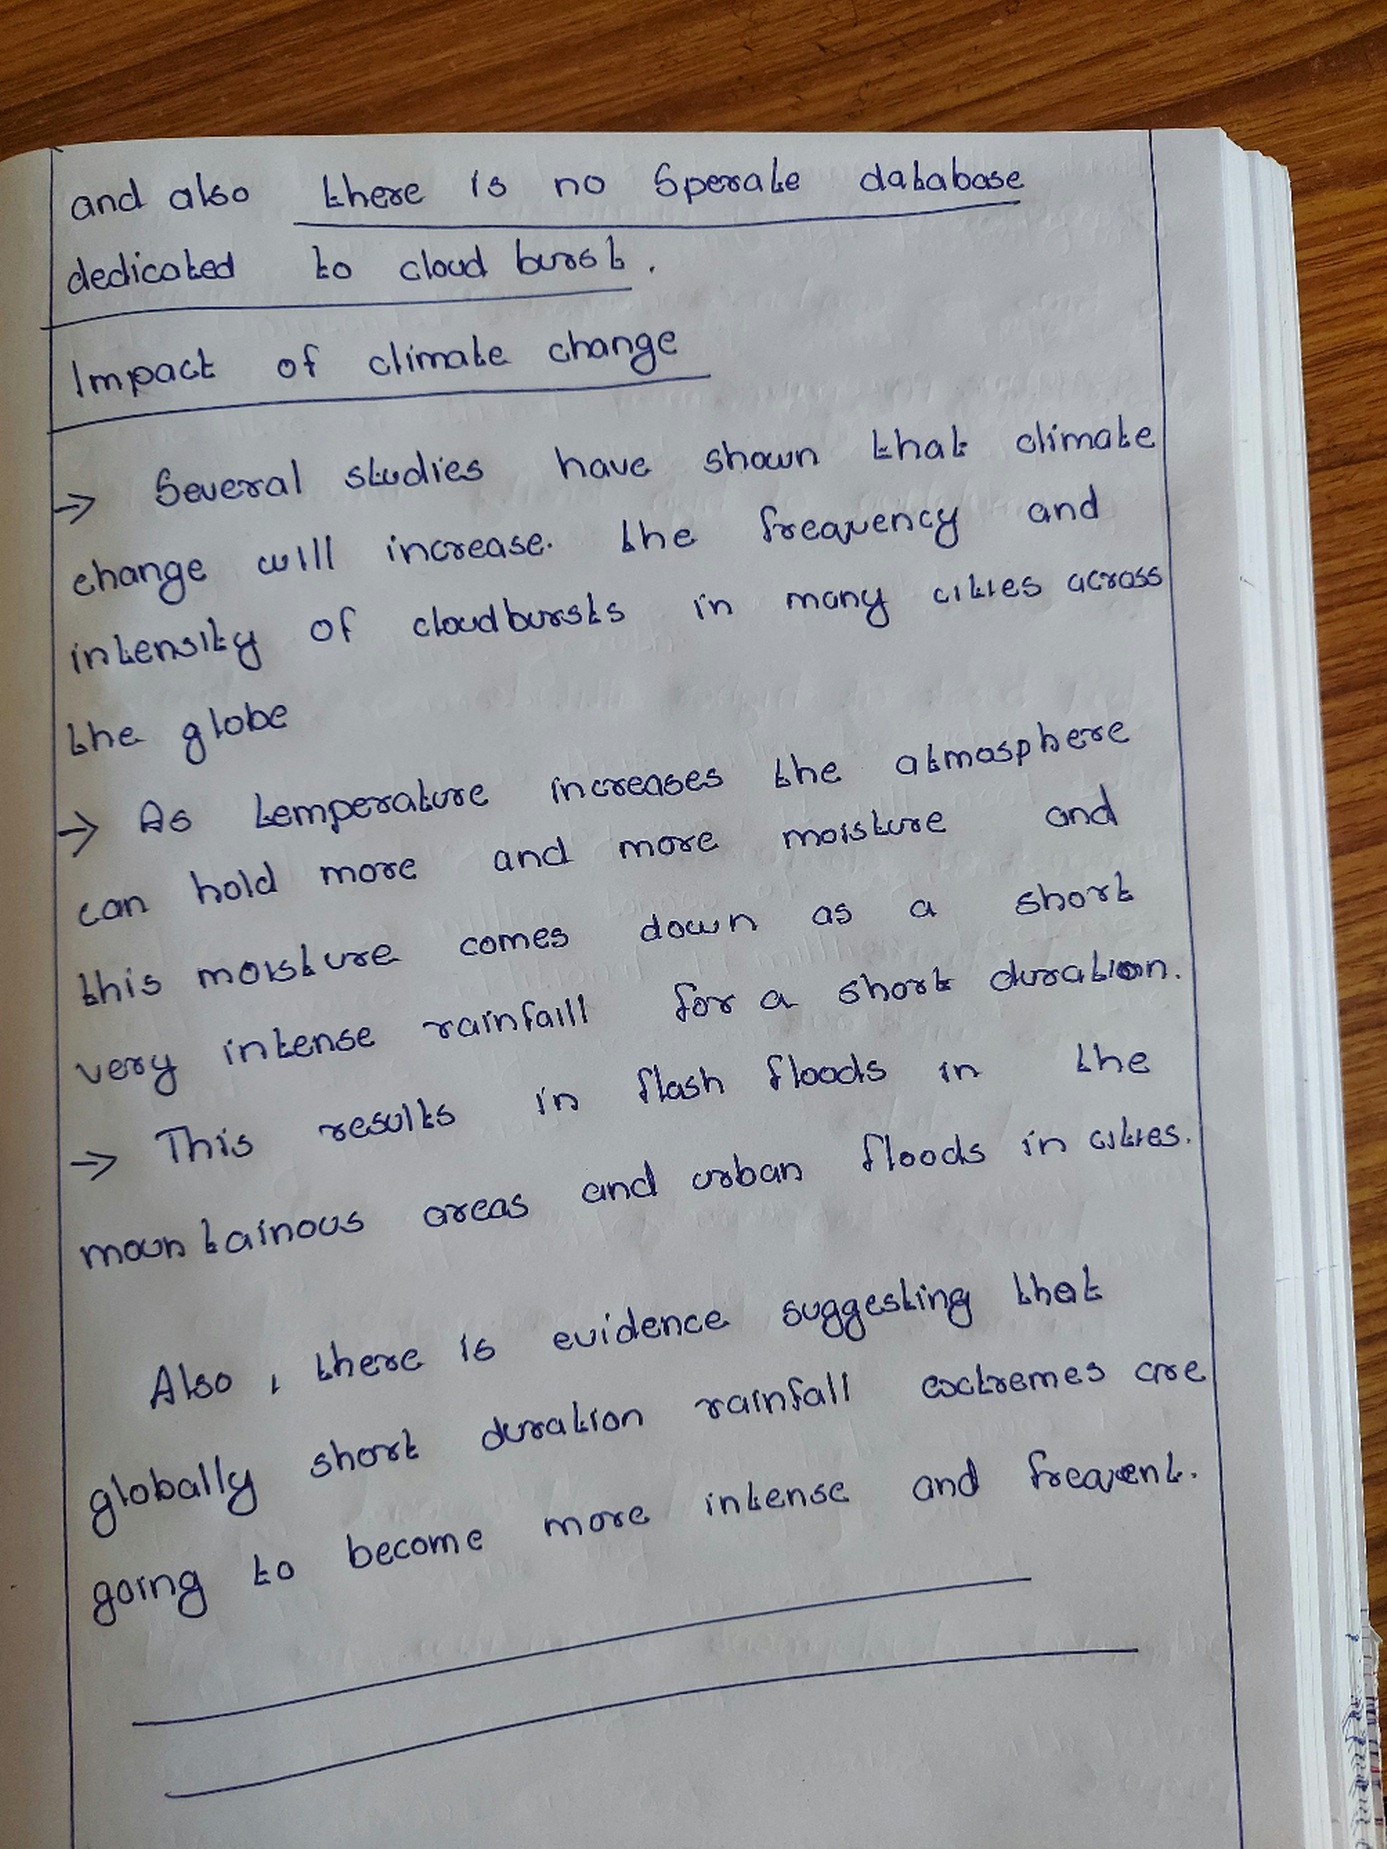 and also there is no Sperate database
dedicated to cloud burst.
Impact of climate change
→ Several studies have shown that climate
change will increase. the frequency and
intensity of cloudbursts in many cities across
the globe
→ As temperature increases the atmosphere
can hold more and more moisture and
this moisture comes down as a short
very intense rainfall for a short duration.
→ This results in flash floods in the
mountainous areas and urban floods in cities.
Also, there is evidence suggesting that
globally short duration rainfall extremes are
going to become more intense and frequent.